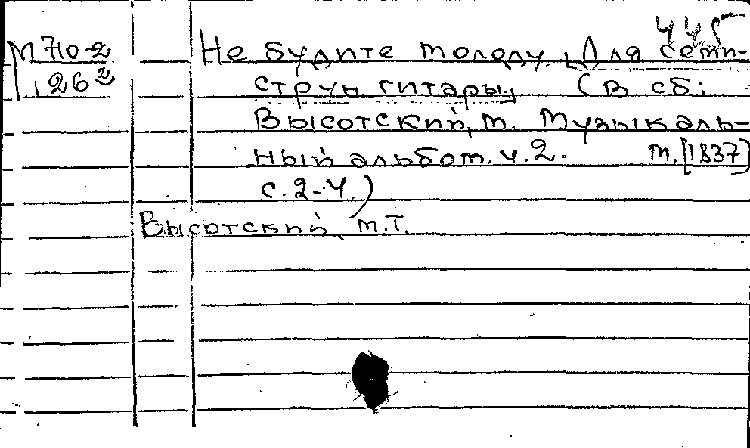 445
М 710-2
126²
Не будите молоду. Для семи-
струн гитары. (В сб:
Высотский, М. Музыкаль-
ный альбом. ч. 2. М. [1837]
с. 2-4.)
Высотский М.Т.